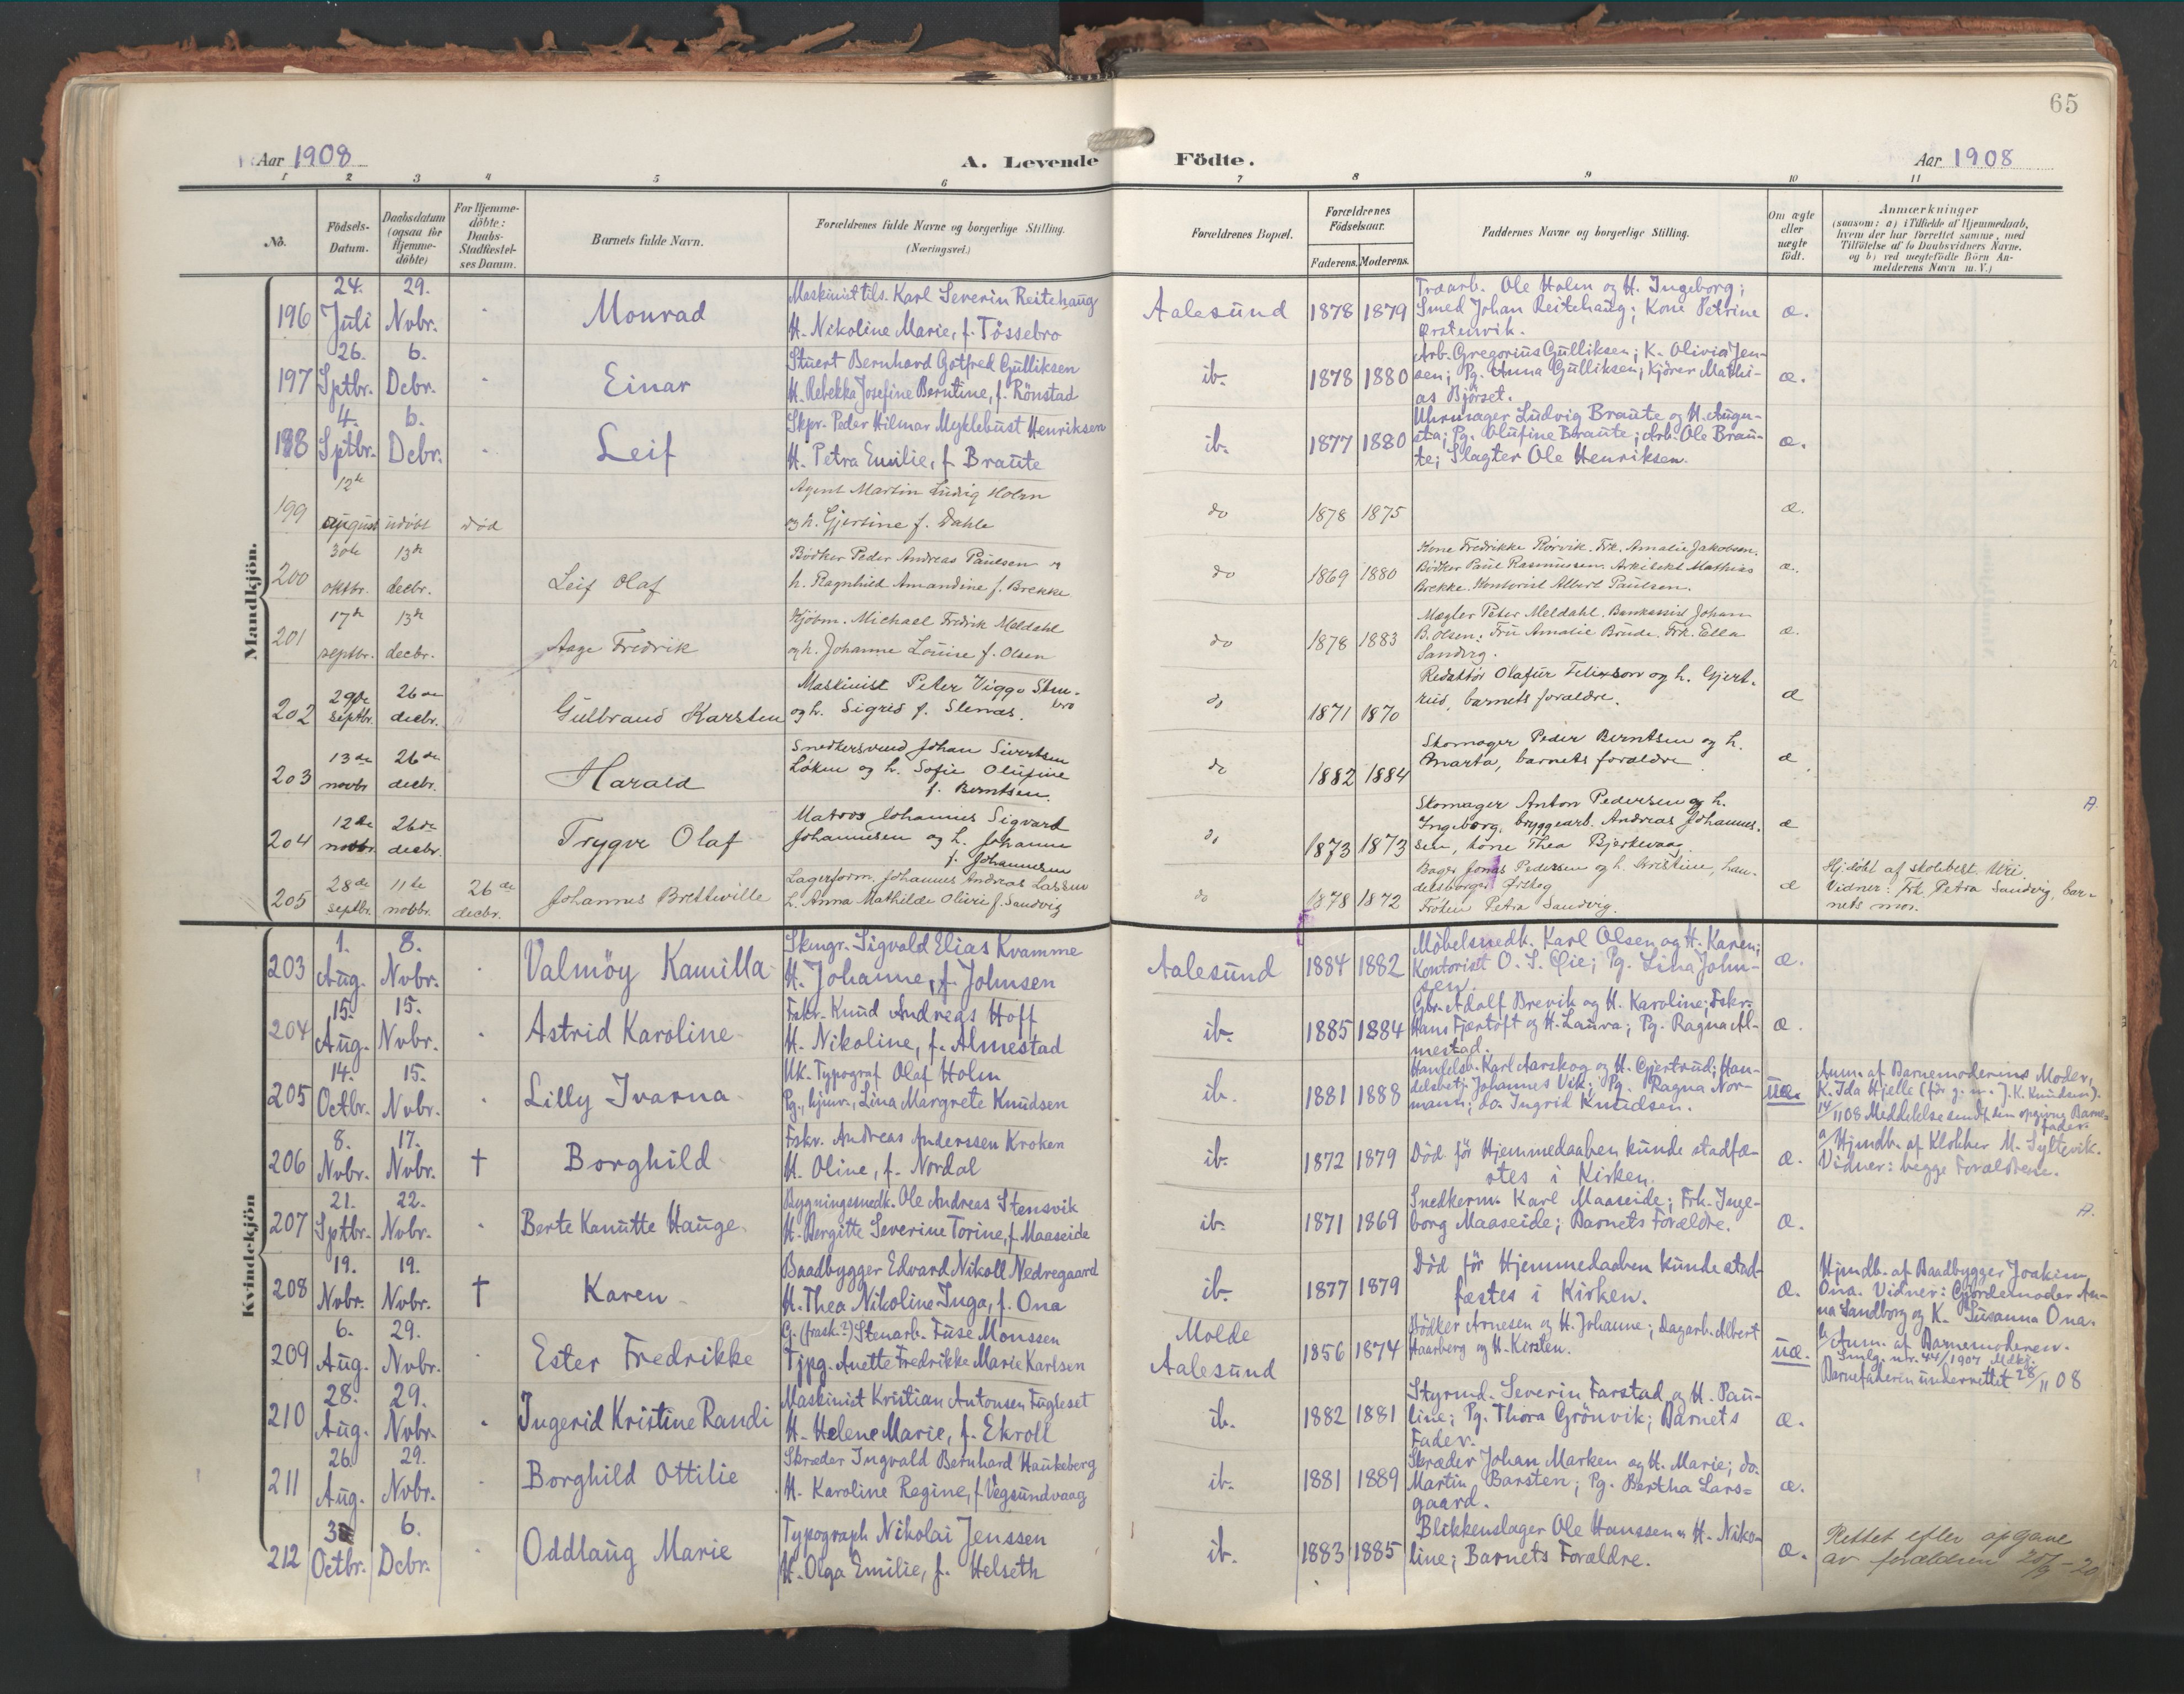 65
Aar 1908
A. Levende Födte.
Aar 1908
1 2 3 4 5 6 7 8 9 10 11
No.
Födsels-
Datum.
Daabsdatum
(ogsaa for
Hjemme-
döbte)
For Hjemme-
döbte:
Daabs-
Stadfæstel-
ses Datum.
Barnets fulde Navn.
Forældrenes fulde Navne og borgerlige Stilling.
(Næringsvei.)
Forældrenes Bopæl.
Forældrenes
Födselsaar.
Faderens. Moderens.
Faddernes Navne og borgerlige Stilling.
Om ægte
eller
uægte
födt.
Anmærkninger
(saasom: a) i Tilfælde af Hjemmedaab,
hvem der har forrettet samme, med
Tilföielse af to Daabsvidners Navne,
og b) ved uægtefödte Börn An-
melderens Navn m. V.)
Mandkjön.
196
24.
Juli
29.
Nvbr.
Monrad
Maskinist tils. Karl Severin Reitehaug
H. Nikoline Marie, f. Tössebro
Aalesund
1878 1879
Træarb. Ole Holm og H. Ingeborg;
Smed Johan Reitehaug; Kone Petrine
Ørstenvik.
æ.
197
26.
Sptbr.
6.
Dcbr.
Einar
Stuert Bernhard Gotfred Gulliksen
H. Rebekka Josefine Berntine, f. Rönstad
ib.
1878 1880
Arb. Gregorius Gulliksen; K. Olivia Jen-
sen; Pg. Anna Gulliksen; Kjörer Mathi-
as Björset.
æ.
198
4.
Sptbr.
6.
Dcbr.
Leif
Skpr. Peder Hilmar Myklebust Henriksen
H. Petra Emilie, f. Braute
ib.
1877 1880
Uhrmager Ludvig Braute og H. Augu-
sta; Pg. Olufine Braute; Arb. Ole Brau-
te; Slagter Ole Henriksen.
æ.
199
12te
august
udöbt
död
Agent Martin Ludvig Holm
og h. Gjertine f. Dahle
do
1878 1875
æ.
200
30te
oktbr.
13de
decbr.
Leif Olaf
Bödker Peder Andreas Paulsen og
h. Ragnhild Amandine f. Brekke
do
1869 1880
Kone Fredrikke Rörvik. Frk. Amalie Jakobsen.
Bödker Paul Rasmussen. Arkitekt Mathias
Brekke. Kontorist Albert Paulsen.
æ.
201
17de
septbr.
13de
decbr.
Aage Fredrik
Kjöbm. Michael Fredrik Meldahl
og h. Johanne Louise f. Olsen
do
1878 1883
Mægler Peter Meldahl. Bankassist Johan
B. Olsen. Fru Amalie Brude. Frk. Ella
Sandvig.
æ.
202
29de
septbr.
26de
decbr.
Gulbrand Karsten
Maskinist Peter Viggo Sten-
bro
og h. Sigrid f. Stenæs.
do
1871 1870
Redaktör Olafur Felixson og h. Gjert-
rud, barnets forældre.
æ
203
13de
novbr
26de
decbr.
Harald
Snedkersvend Johan Sivertsen
Löken og h. Sofie Olufine
f. Berntsen.
do
1882 1884
Skomager Peder Berntsen og h.
Marta, barnets forældre
æ
204
12te
novbr.
26de
decbr.
Trygve Olaf
Matros Johannes Sigvard
Johannesen og h. Johanne
f. Johannesen
do
1873 1873
Skomager Anton Pedersen og h.
Ingeborg, bryggearb. Andreas Johannes-
sen, kone Thea Bjerkevaag
æ
A.
205
28de
septbr.
11te
novbr.
26de
decbr.
Johannes Brettville
Lagerform. Johannes Andreas Larsen
h. Anna Mathilde Olivie f. Sandvig
do
1878 1872
Bager Jonas Pedersen og h. Kristine, han-
delsborger Ørskog
Fröken Petra Sandvig.
æ
Hj.döbt af skolebest. Wri.
Vidner: Frk. Petra Sandvig, bar-
nets mor.
Kvindekjön
203
1.
Aug.
8.
Nvbr.
Valmöy Kamilla
Skmgr. Sigvald Elias Kvamme
H. Johanne, f. Johnsen
Aalesund
1884 1882
Möbelsnedk. Karl Olsen og H. Karen;
Kontorist O. S. Øie; Pg. Lina John-
sen.
æ.
204
15.
Aug.
15.
Nvbr.
Astrid Karoline
Fskr. Knud Andreas Hoff
H. Nikoline, f. Almestad
ib.
1885 1884
Gbr. Adolf Brevik og H. Karoline; Fskr.
Hans Fjærtoft og H. Laura; Pg. Ragna Al-
mestad.
æ.
205
14.
Octbr.
15.
Nvbr.
Lilly Ivarna
Uk. Typograf Olaf Holm
Pg., hjmv., Lina Margrete Knudsen
ib.
1881 1888
Handelsb. Karl Aarskog og H. Gjertrud; Han-
delsbetj. Johannes Vik; Pg. Ragna Nor-
mann; do. Ingrid Knudsen.
uæ.
Anm. af Barnemoderens Moder,
K. Ida Hjelle (för g. m. J. K. Knudsen).
14/11 08 Meddelelse sendt den opgivne Barne-
fader.
206
8.
Nvbr.
17.
Nvbr.
†
Borghild
Fskr. Andreas Anderssen Kroken
H. Oline, f. Nordal
ib.
1872 1879
Död för Hjemmedaaben kunde stadfæ-
stes i Kirken.
æ.
a/ Hjmdb. af Klokker M. Syltevik.
Vidner: begge Forældrene.
207
21.
Sptbr.
22.
Nvbr.
Berte Kanutte Hauge
Bygningssnedk. Ole Andreas Stensvik
H. Bergitte Severine Torine, f. Maaseide
ib.
1871 1869
Snedkerm. Karl Maaseide; Frk. Inge-
borg Maaseide; Barnets Forældre.
æ.
A.
208
19.
Nvbr.
19.
Nvbr.
†
Karen
Baadbygger Edvard Nikoll Nedregaard
H. Thea Nikoline Inga, f. Ona
ib.
1877 1879
Död för Hjemmedaaben kunde stad-
fæstes i Kirken.
æ.
Hjmdb. af Baadbygger Joakim
Ona. Vidner: Gjordemoder An-
na Sandborg og K. Susanna Ona.
209
6.
Aug.
29.
Nvbr.
Ester Fredrikke
G. (frask.?) Stenarb. Fuse Monssen
Tjpg. Anette Fredrikke Marie Karlsen
Molde
Aalesund
1856 1874
Bödker Arnesen og H. Johanne; Dagarb. Albert
Haarberg og H. Kirsten.
uæ.
b/ Anm. af Barnemoderen.
Smlg. nr. 44/1907 Mdkj.
Barnefaderen underrettet 28/11 08
210
28.
Aug.
29.
Nvbr.
Ingerid Kristine Randi
Maskinist Kristian Antonsen Fugleset
H. Helene Marie, f. Ekroll
ib.
1882 1881
Styrmd. Severin Farstad og H. Pau-
line; Pg. Thora Grönvik; Barnets
Fader.
æ.
211
26.
Aug.
29.
Nvbr.
Borghild Ottilie
Skræder Ingvald Bernhard Haukeberg
H. Karoline Regine, f. Vegsundvaag
ib.
1881 1889
Skræder Johan Marken og H. Marie; do.
Martin Barsten; Pg. Bertha Lars-
gaard.
æ.
212
3
Octbr.
6.
Dcbr.
Oddlaug Marie
Typograph Nikolai Jenssen
H. Olga Emilie, f. Helseth
ib.
1883 1885
Blikkenslager Ole Hanssen og H. Niko-
line; Barnets Forældre.
æ.
Rettet efter opgave
av forældren 20/9-20